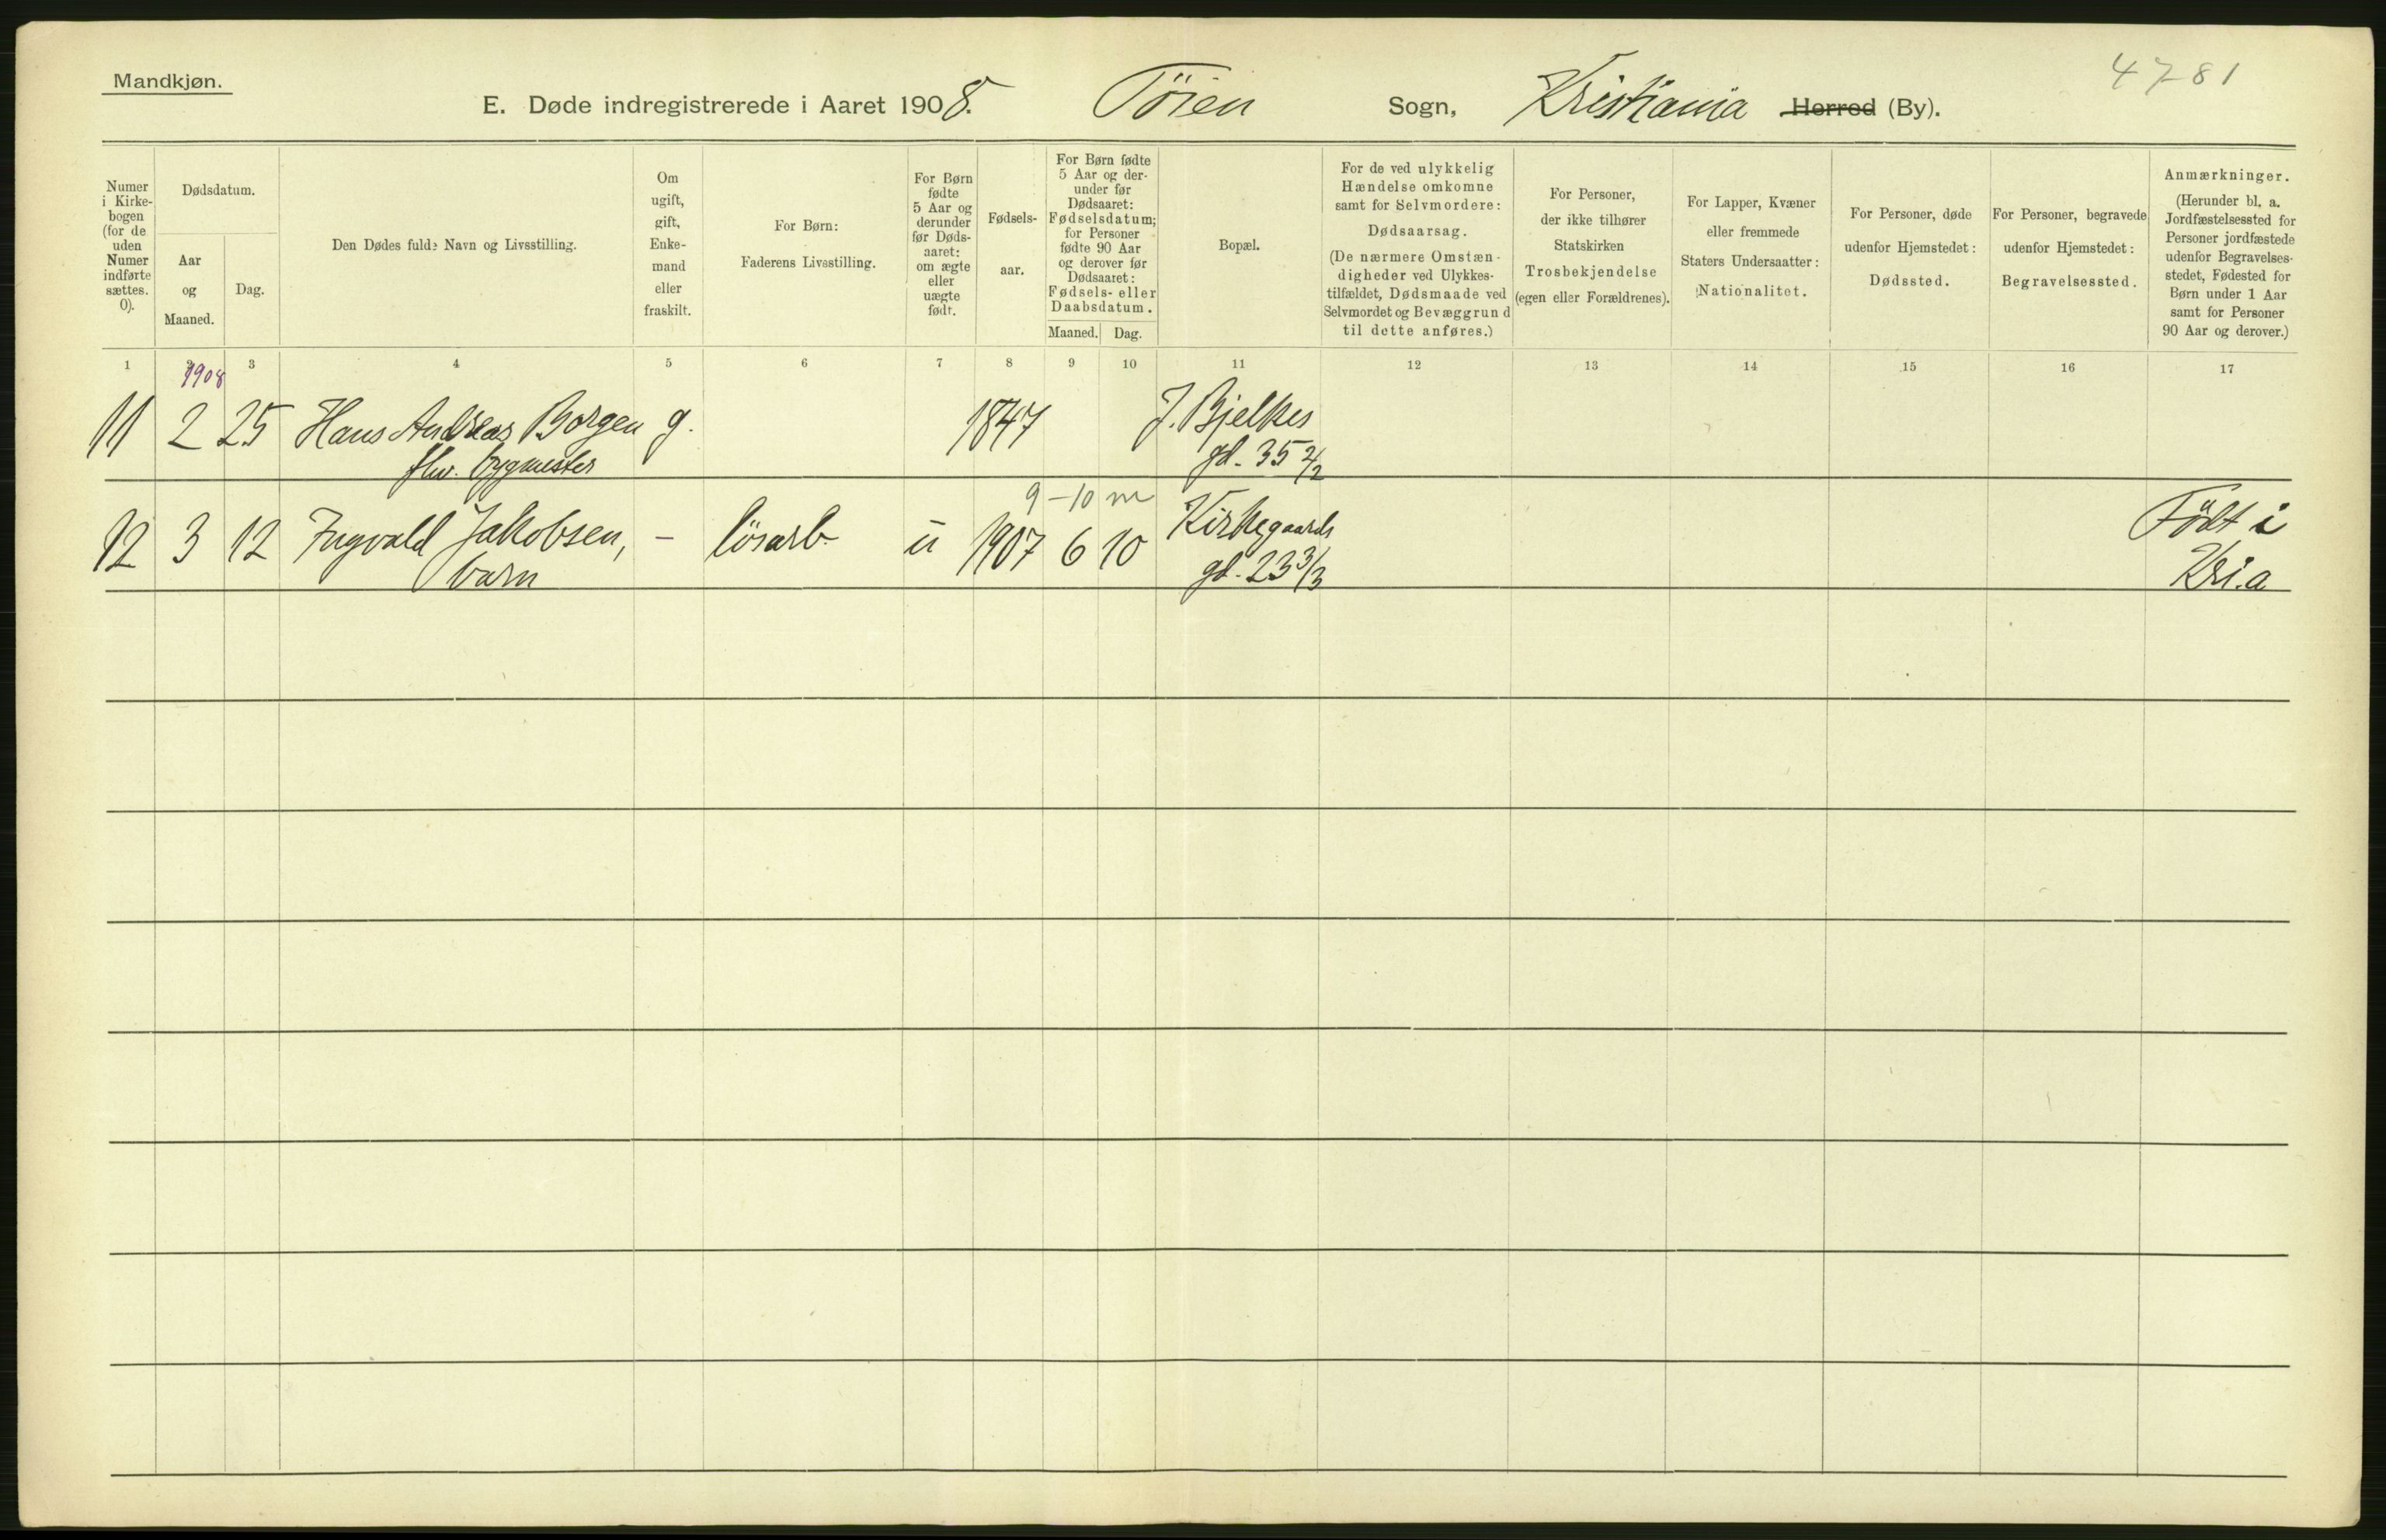 Mandkjøn.
4781
E. Døde indregistrerede i Aaret 1908. Töien Sogn, Kristiania Herred (By).
Numer i Kirke-bogen (for de uden Numer indførte sættes. 0).
Dødsdatum.
Aar og Maaned.
Dag.
Den Dødes fulde Navn og Livsstilling.
Om ugift, gift, Enke-mand eller fraskilt.
For Børn: Faderens Livsstilling.
For Børn fødte 5 Aar og derunder før Døds-aaret: om ægte eller uægte født.
Fødsels-aar.
For Børn fødte 5 Aar og der-under før Dødsaaret: Fødselsdatum; for Personer fødte 90 Aar og derover før Dødsaaret: Fødsels- eller Daabsdatum.
Maaned. Dag.
Bopæl.
For de ved ulykkelig Hændelse omkomne samt for Selvmordere: Dødsaarsag. (De nærmere Omstæn-digheder ved Ulykkes-tilfældet, Dødsmaade ved Selvmordet og Bevæggrund til dette anføres.)
For Personer, der ikke tilhører Statskirken Trosbekjendelse (egen eller Forældrenes).
For Lapper, Kvæner eller fremmede Staters Undersaatter: Nationalitet.
For Personer, døde udenfor Hjemstedet: Dødssted.
For Personer, begravede udenfor Hjemstedet: Begravelsessted.
Anmærkninger. (Herunder bl. a. Jordfæstelsessted for Personer jordfæstede udenfor Begravelses-stedet, Fødested for Børn under 1 Aar samt for Personer 90 Aar og derover.)
1 2 3 4 5 6 7 8 9 10 11 12 13 14 15 16 17
1908
11 2 25 Hans Andreas Borgen g. 1847 J. Bjelkes
fhv. bygmester gd. 35 2/2
9-10 m
12 3 12 Ingvald Jakobsen, - lösarb. u 1907 6 10 Kirkegaards Födt i
barn gd. 23 3/3 Kri.a